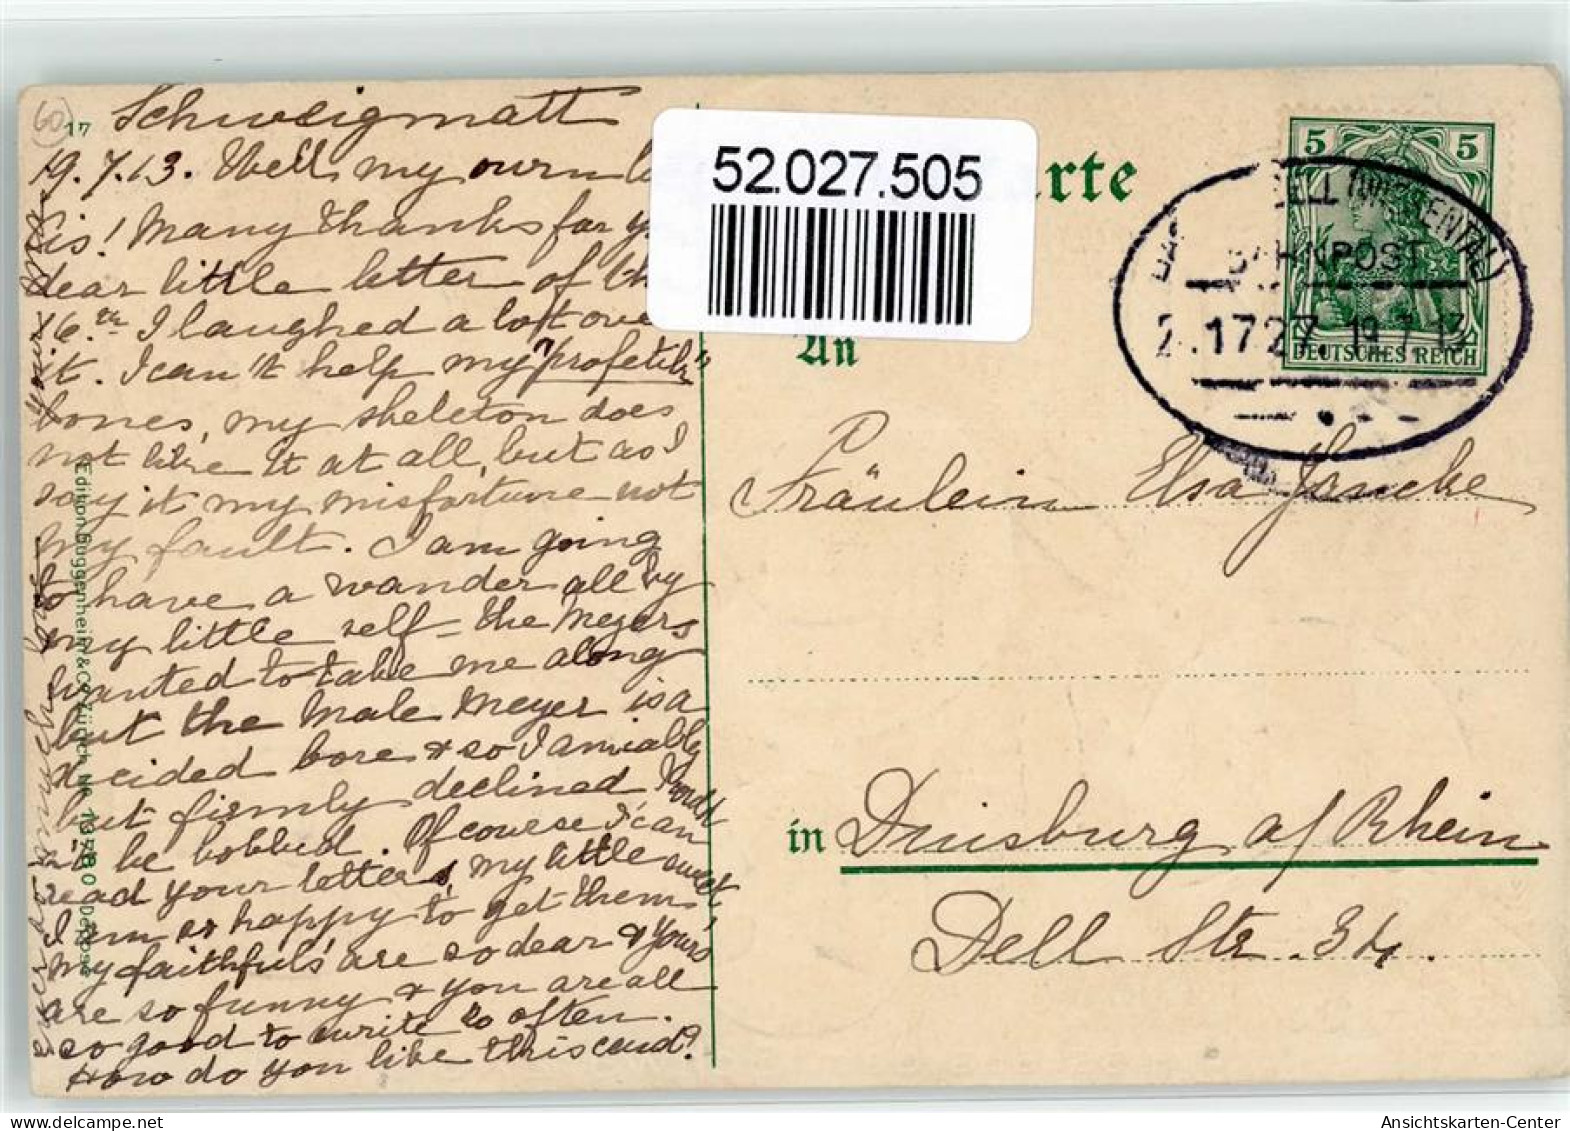 60
17
Schweigmatt
19.7.13. Well my own
sis! Many thanks for
dear little letter of the
16th I laughed a lot over
it. I can't help my "profetible"
bones, my skeleton does
not like it at all, but as I
say it my misfortune not
my fault. I am going
to have a wander all by
my little self - the Meyers
wanted to take me along
but the Male Meyer is a
decided bore & so I amiably
but firmly declined I won't
be bobbed. Of course I can
read your letters, my little sweet
I am so happy to get them
my faithful's are so dear & yours
are so funny & you are all
so good to write so often.
How do you like this card?
Edition Guggenheim & Co., Zürich, No. 13780 Déposé
52.027.505
rte
An
Fräulein Elsa Jancke
in Duisburg a/Rhein
Dell Str. 34.
5 5
DEUTSCHES REICH
ZELL (WIESENTAL)
BAHNPOST
Z.1727. 19.7.13
Ansichtskarten-Center